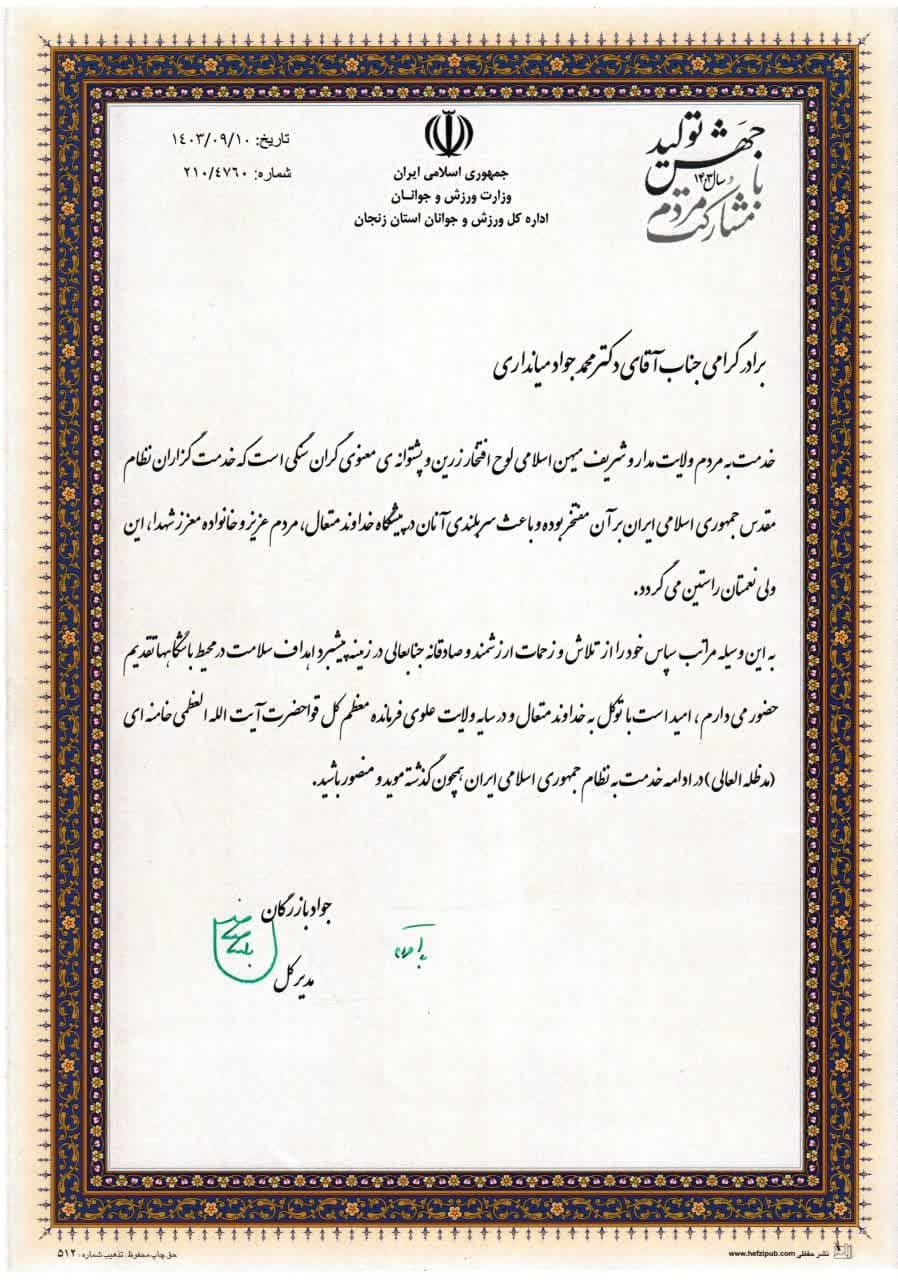 جهش تولید
با
در سال ۱۴۰۳
مشارکت مردم
جمهوری اسلامی ایران
وزارت ورزش و جوانان
اداره کل ورزش و جوانان استان زنجان
تاریخ: ۱۴۰۳/۰۹/۱۰
شماره: ۲۱۰/۴۷۶۰
برادر گرامی جناب آقای دکتر محمد جواد میانداری
خدمت به مردم ولایت مدار و شریف میهن اسلامی لوح افتخار زرین و پشتوانه ی معنوی گران سنگی است که خدمت گزاران نظام
مقدس جمهوری اسلامی ایران بر آن مفتخر بوده و باعث سربلندی آنان در پیشگاه خداوند متعال، مردم عزیز و خانواده معزز شهدا، این
ولی نعمتان راستین می گردد.
به این وسیله مراتب سپاس خود را از تلاش و زحمات ارزشمند و صادقانه جنابعالی در زمینه پیشبرد اهداف سلامت در محیط باشگاهها تقدیم
حضور می دارم ، امید است با توکل به خداوند متعال و در سایه ولایت علوی فرمانده معظم کل قوا حضرت آیت الله العظمی خامنه ای
(مدظله العالی) در ادامه خدمت به نظام جمهوری اسلامی ایران همچون گذشته موید و منصور باشید.
جواد بازرگان
مدیر کل
نشر حفظی www.hefzipub.com
حق چاپ محفوظ. تذهیب شماره: ۵۱۲